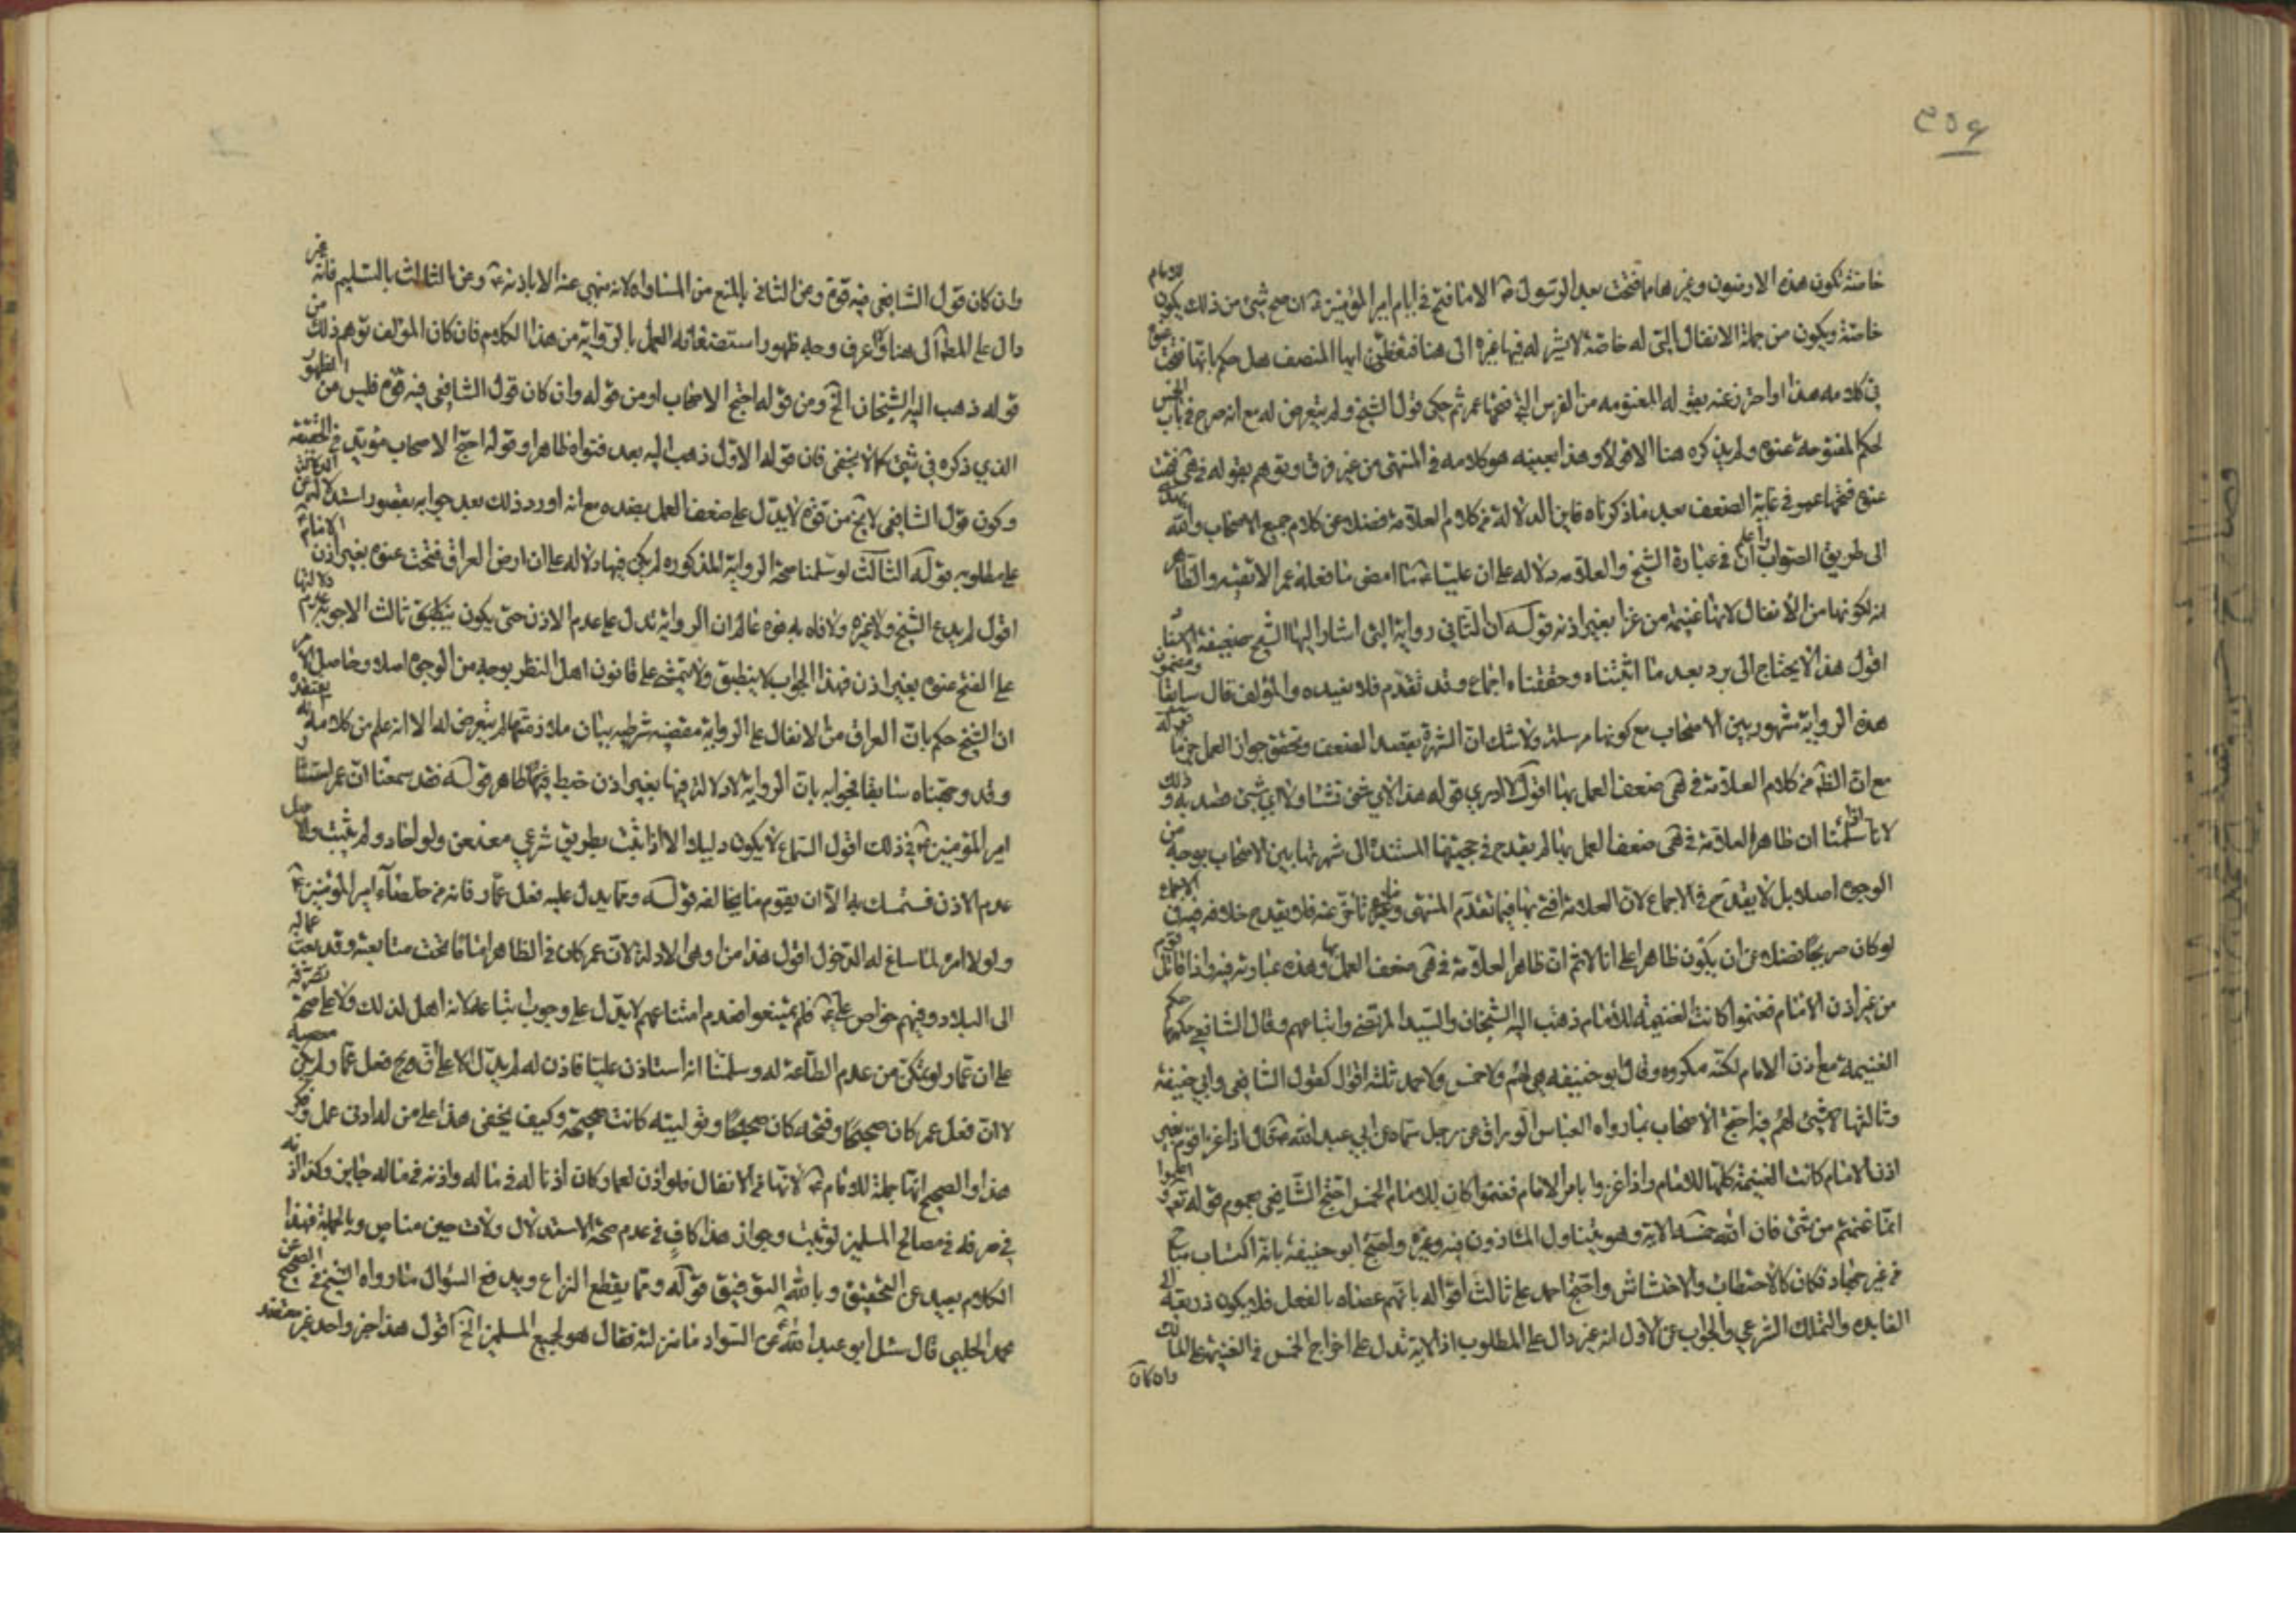 ٣٥٤
خاصة تكون هذه الارضون وغيرها مما فتحت بعد الرسول ص الا ما فتح في ايام امير المؤمنين ع ان صح شيئ من ذلك يكون للامام
خاصة ويكون من جملة الانفال التي له خاصة لا يشركه فيها غيره الى هنا ايها المنصف هل حكم بانها فتحت عنوة
في كلامه هذا او احترز عنه بقوله المغنومه من الفرس التي فتحها عمر ثم حكى قول الشيخ ولم يتعرض له مع انه صرح في باب الخمس
لحكم المفتوحة عنوة ولم يذكره هنا الا قولا وهذا بعينه هو كلامه في المنتهى من غير فرق وتوهم بقوله فتحت
عنوة فتحها عمر في غاية الضعف بعد ما ذكرناه فاين الدلالة من كلام العلامة فضلا عن كلام جميع الاصحاب والله يهدي
الى طريق الصواب في عبارة الشيخ والعلامه دلالة على ان عليا ع ما امضى ما فعله عمر الا تقية والظاهر
انه لكونها من الانفال لانها غنيمة من غزا بغير اذنه قوله ان الثاني رواية التي اشار اليها الشيخ ضعيفة الاسناد
اقول هذا لا يحتاج الى رد بعد ما اثبتناه وحققناه اجماع وقد تقدم فلا نعيده والمؤلف قال سابقا ومضمون
هذه الرواية مشهور بين الاصحاب مع كونها مرسلة ولا شك ان الشهرة الضعف وتحقق جواز العمل قوله
مع ان الظ من كلام العلامة في هي ضعف العمل بها اقول لا ادري قوله هذا لاي شئ ولاي شئ ذلك
لانا سلمنا ان ظاهر العلامة في هي ضعف العمل بها لم يقدح في حجيتها المستندة الى شهرتها بين الاصحاب بوجه من
الوجوه اصلا بل لا يقدح في الاجماع لان العلامة افتى بها فيما تقدم المنتهى وغيره تاخر عنه فلا يقدح خلافه في الاجماع
لو كان صريحا فضلا عن ان يكون ظاهرا على انا لا نم ان ظاهر العلامة في هي ضعف العمل بها وهذه عبارته فيه واذا قاتل قوم
من غير اذن الامام فغنموا كانت الغنيمة للامام ذهب اليه الشيخان والسيد المرتضى واتباعهم وقال الشافعي حكمها حكم
الغنيمة مع اذن الامام لكنه مكروه وقال ابو حنيفه هي لهم ولا خمس ولاحمد ثلثة اقوال كقول الشافعي وابي حنيفة
وثالثها لا شيئ لهم فيه احتج الاصحاب بما رواه العباس الوراق عن رجل سماه عن ابي عبد الله ع قال اذا غزا قوم بغير
اذن الامام كانت الغنيمة كلها للامام واذا غزوا بامر الامام فغنموا كان للامام الخمس احتج الشافعي بعموم قوله تع واعلموا
انما غنمتم من شئ فان لله خمسه الاية وهو يتناول الماذون فيه وغيره واحتج ابو حنيفة بانه اكتساب مباح
من غير جهاد فكان كالاحتطاب والاحتشاش واحتج احمد على ثالث اقواله بانهم عصاه بالفعل فلا يكون ذريعة الى
الفايده والتملك الشرعي والجواب عن الاول انه غير دال على المطلوب اذ الاية تدل على اخراج الخمس في الغنيمة على المالك
وان كان
وان كان قول الشافعي فيه قوة وعن الثاني بالمنع من المساواه لانه منهي عنه الا باذنه ع وعن الثالث بالتسليم فانه غير
دال على المط الى هنا وعرف وجه ظهور استضعافه العمل بالرواية من هذا الكلام فان كان المؤلف توهم ذلك من
قوله ذهب اليه الشيخان الخ ومن قوله احتج الاصحاب او من قوله وان كان قول الشافعي فيه قوة فليس من الظهور
الذي ذكره في شئ كما لا يخفى فان قوله الاول ذهب اليه بعد فتواه ظاهرا وقوله احتج الاصحاب مؤيد
وكون قول الشافعي لا يخ من قوة لا يدل على ضعف العمل بضده مع انه اورد ذلك بعد جوابه بقصور استدلاله عن
على مطلوبه قوله الثالث لو سلمنا صحة الرواية المذكوره لم يكن فيها دلاله على ان ارض العراق فتحت عنوة بغير اذن الامام
اقول لم يدع الشيخ ولا غيره ولا فاه به فوه عالم ان الرواية تدل على عدم الاذن حتى يكون ينطبق ثالث الاجوبة عدم دلالتها
على الفتح عنوة بغير اذن فهذا الجواب لا ينطبق ولا يتمشى على قانون اهل النظر بوجه من الوجوه اصلا وحاصل الامر
ان الشيخ حكم بان العراق من الانفال على الرواية مقضيه شرطيه بيان ملازمتها لم يتعرض لها الا انه علم من كلامه انه يعتقده
وقد وجهناه سابقا فجوابه بان الرواية لا دلالة فيها بغير اذن خبط فيها ظاهر قوله فقد سمعنا ان عمر استشار
امير المؤمنين ع في ذلك اقول السماع لا يكون دليلا الا اذا ثبت بطريق شرعي معنعن ولو احاد ولم يثبت والاصل
عدم الاذن فنتمسك به الا ان يقوم ما يخالفه قوله ومما يدل عليه فعل عمار فانه من خلصاء امير المؤمنين ع
ولولا امره لما ساغ له الدخول اقول هذا من اوهى الادلة لان عمر كان في الظاهر اماما تحت متابعته وقد بعث عماله
الى البلاد وفيهم خواص علي ع فلم يمتنعوا فعدم امتناعهم لا يدل على وجوب اتباعه لانه اهل لذلك ولا على صحة تصرفه
على ان عمار لو تمكن من عدم الطاعة له وسلمنا انه استاذن عليا فاذن له لم يدل الا على صحة فعل عمار ولم يكن
لا ان فعل عمر كان صحيحا وفتحه كان صحيحا وتوليته كانت صحيحة وكيف يخفى هذا على من له ادنى عمل وفكر
هذا والصحيح انها جملة للامام ع لانها من الانفال فلو اذن لعمار كان اذنا له في ماله واذنه في ماله جايز وكذا اذنه
في صرفه في مصالح المسلمين لو ثبت وجواز هذا كاف في عدم صحة الاستدلال ولات حين مناص وبالجملة فهذا
الكلام بعيد عن التحقيق وبالله التوفيق قوله ومما يقطع النزاع ويدفع السؤال ما رواه الشيخ في الصحيح عن
محمد الحلبي قال سئل ابو عبد الله ع عن السواد ما منزلته فقال هو لجميع المسلمين الخ اقول هذا خبر واحد غير معتضد